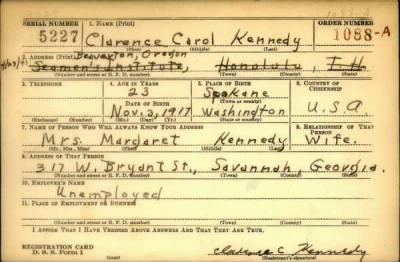 SERIAL NUMBER 1. NAME (Print) ORDER NUMBER
5227 Clarence Carol Kennedy 1088-A
(First) (Middle) (Last)
2. ADDRESS (Print) Beaverton, Oregon
Seamen's Institute, Honolulu, T.H.
(Number and street or R. F. D. number) (Town) (County) (State)
3. TELEPHONE 4. AGE IN YEARS 5. PLACE OF BIRTH 6. COUNTRY OF CITIZENSHIP
23 Spokane
DATE OF BIRTH (Town or county)
Nov. 3, 1917 Washington U.S.A.
(Exchange) (Number) (Mo.) (Day) (Yr.) (State or country)
7. NAME OF PERSON WHO WILL ALWAYS KNOW YOUR ADDRESS 8. RELATIONSHIP OF THAT PERSON
Mrs. Margaret Kennedy Wife.
(Mr., Mrs., Miss) (First) (Middle) (Last)
9. ADDRESS OF THAT PERSON
317 W. Bryant St., Savannah Georgia.
(Number and street or R. F. D. number) (Town) (County) (State)
10. EMPLOYER'S NAME
Unemployed
11. PLACE OF EMPLOYMENT OR BUSINESS
(Number and street or R. F. D. number) (Town) (County) (State)
I AFFIRM THAT I HAVE VERIFIED ABOVE ANSWERS AND THAT THEY ARE TRUE.
REGISTRATION CARD
D. S. S. Form 1 (over) Clarence C. Kennedy
(Registrant's signature)